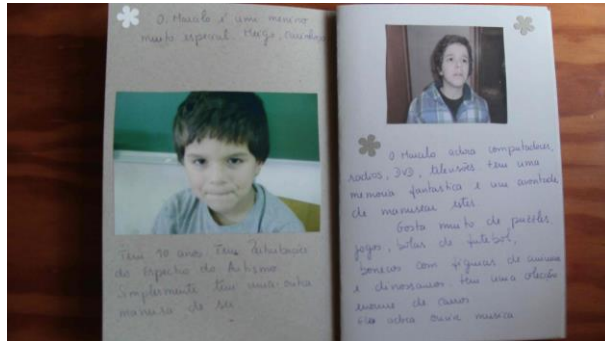 O Murilo é um menino
muito especial. Meigo, carinhoso
Tem 10 anos. Tem Perturbação
do Espectro do Autismo
simplesmente tem uma outra
maneira de ser
O Murilo adora computadores,
rádios, DVD, televisões tem uma
memoria fantastica e uma vontade
de manusear estes
Gosta muito de puzzles
jogos, bolas de futebol,
bonecos com figuras de animais
e dinossauros. tem uma coleção
enorme de carros
Ele adora ouvir musica